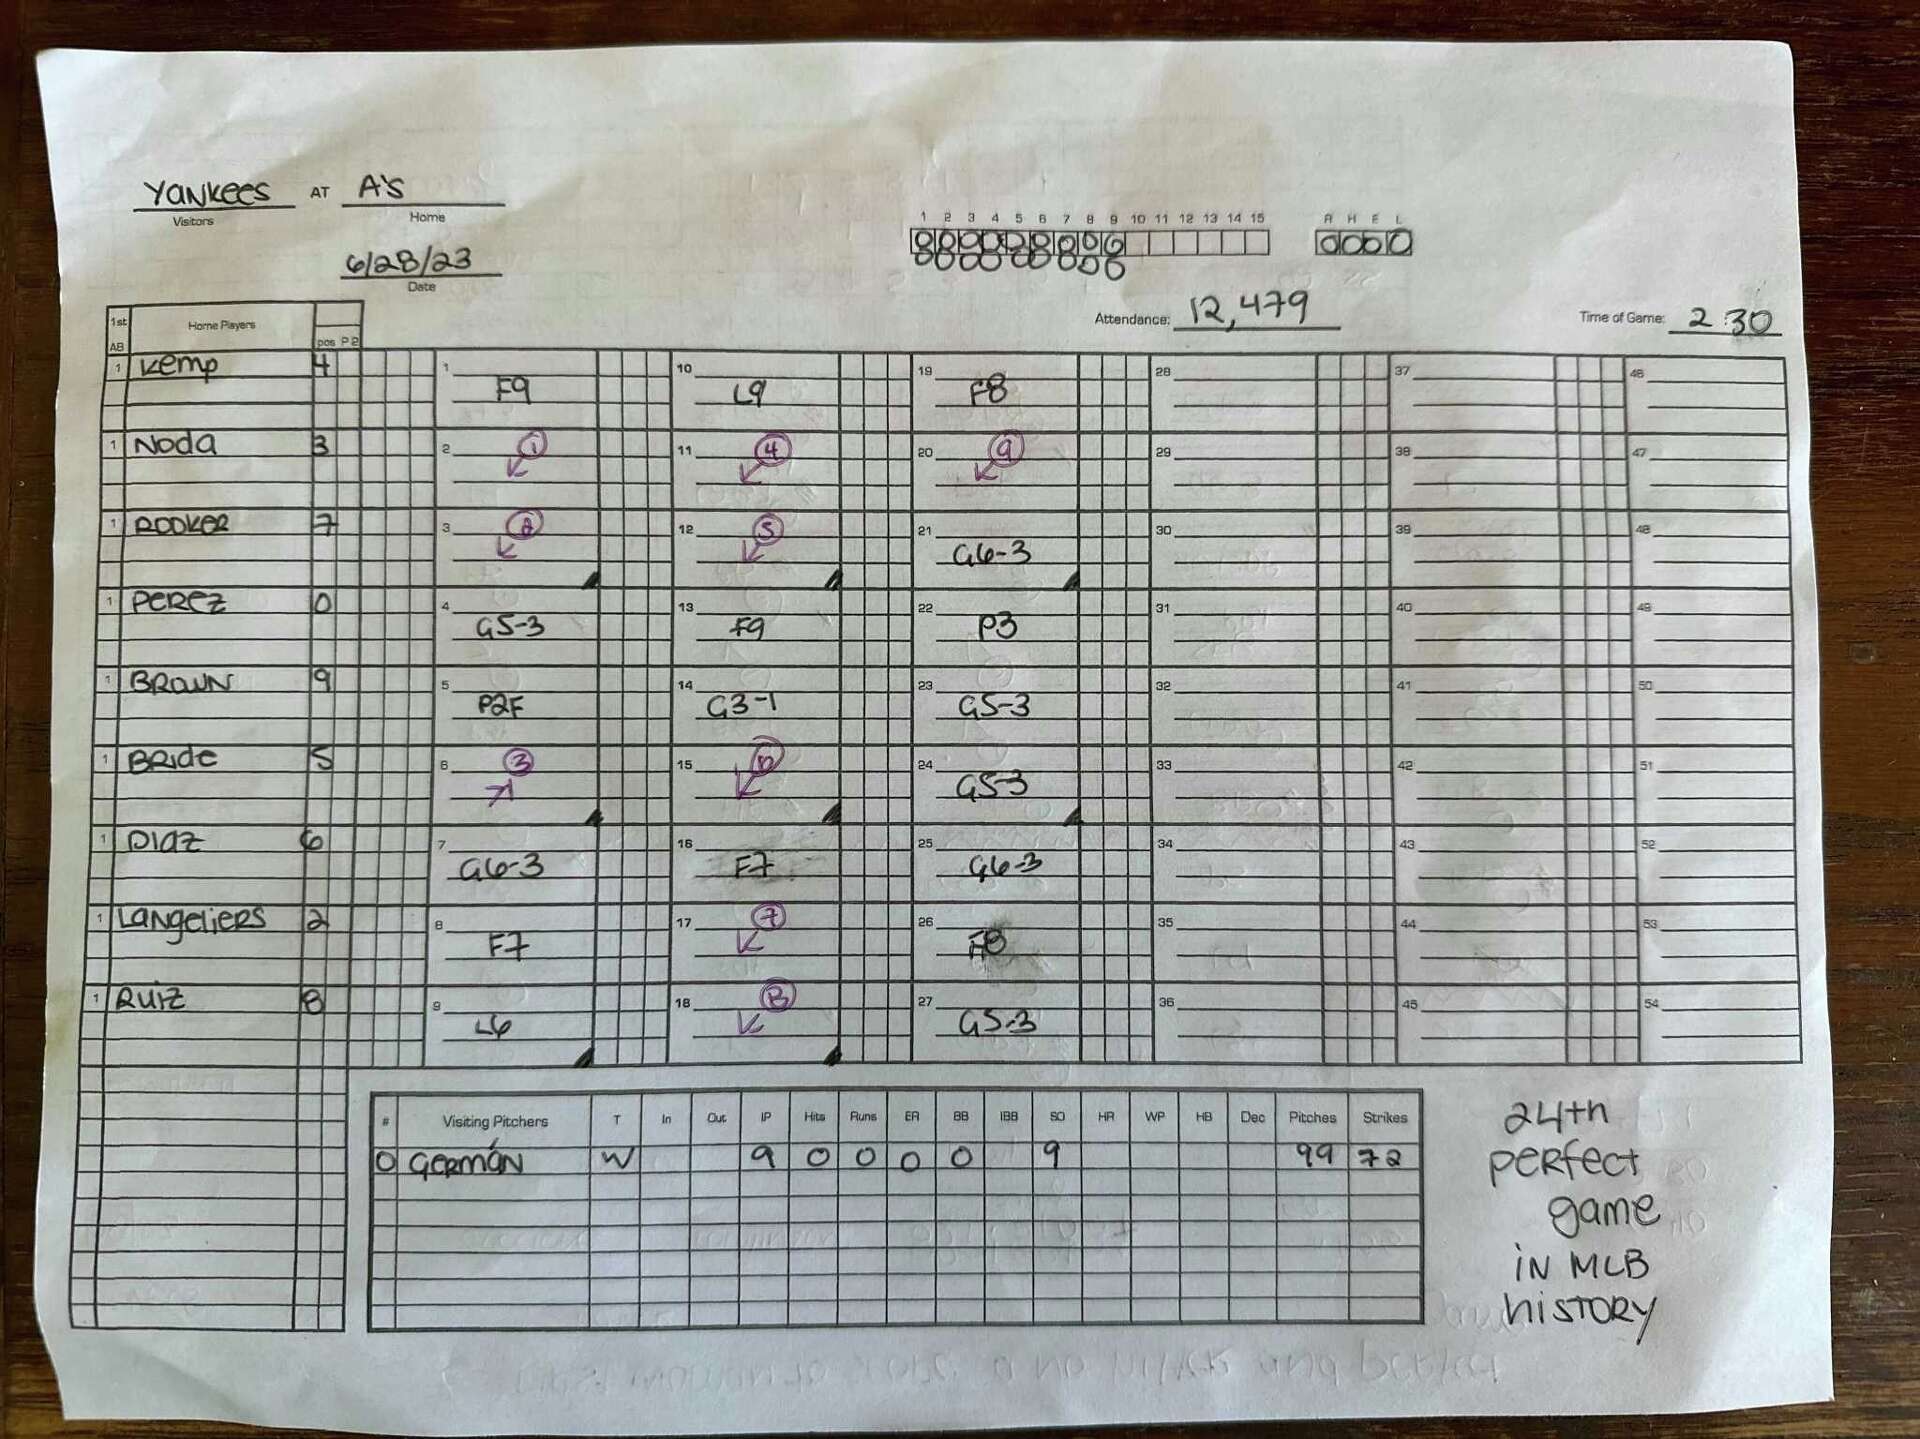 Yankees AT A's
Visitors Home
6/28/23
Date
1 2 3 4 5 6 7 8 9 10 11 12 13 14 15 R H E L
0 0 0 0 0 0 0 0 0 0 0 0 0
0 0 0 0 0 0 0 0 0
Attendance: 12,479 Time of Game: 2:30
1st Home Players
AB pos P2
1 Kemp 4 1 F9 10 L9 19 F8 28 37 46
1 Noda 3 2 1 11 4 20 9 29 38 47
1 ROOKER 7 3 2 12 5 21 G6-3 30 39 48
1 Perez 0 4 G5-3 13 F9 22 P3 31 40 49
1 BROWN 9 5 P2F 14 G3-1 23 G5-3 32 41 50
1 BRide 5 6 3 15 6 24 G5-3 33 42 51
1 DIaz 6 7 G6-3 16 F7 25 G6-3 34 43 52
1 Langeliers 2 8 F7 17 7 26 F8 35 44 53
1 RUIZ 8 9 L6 18 8 27 G5-3 36 45 54
# Visiting Pitchers T In Out IP Hits Runs ER BB IBB SO HR WP HB Dec Pitches Strikes
0 GERMÁN W 9 0 0 0 0 9 99 72
24th
perfect
game
in MLB
history